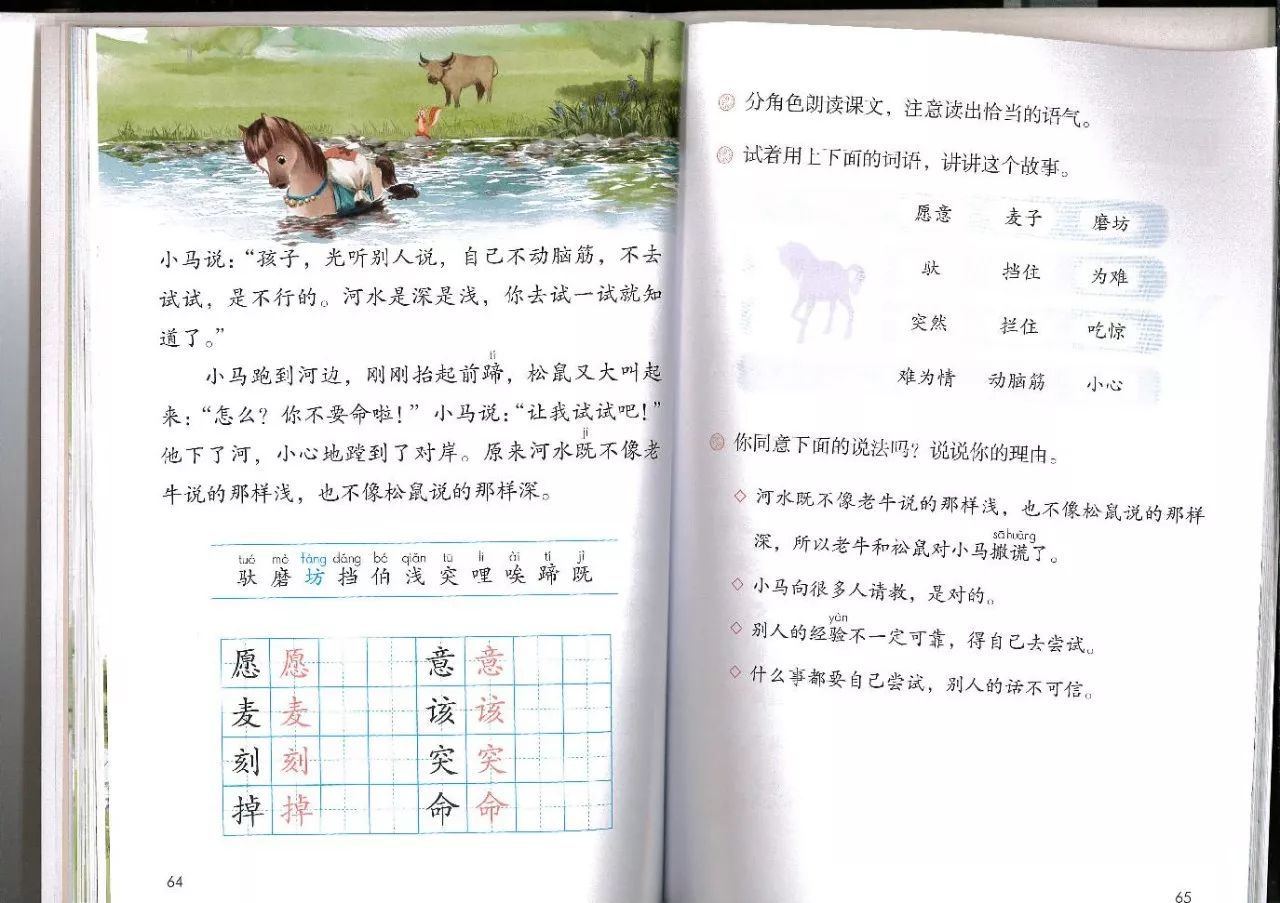 小马说：“孩子，光听别人说，自己不动脑筋，不去
试试，是不行的。河水是深是浅，你去试一试就知
道了。”
tí
小马跑到河边，刚刚抬起前蹄，松鼠又大叫起
来：“怎么？你不要命啦！”小马说：“让我试试吧！”
jì
他下了河，小心地蹚到了对岸。原来河水既不像老
牛说的那样浅，也不像松鼠说的那样深。
tuó mò fáng dǎng bó qiǎn tū li ài tí jì
驮 磨 坊 挡 伯 浅 突 哩 唉 蹄 既
愿 愿 意 意
麦 麦 该 该
刻 刻 突 突
掉 掉 命 命
64
分角色朗读课文，注意读出恰当的语气。
试着用上下面的词语，讲讲这个故事。
愿意 麦子 磨坊
驮 挡住 为难
突然 拦住 吃惊
难为情 动脑筋 小心
你同意下面的说法吗？说说你的理由。
河水既不像老牛说的那样浅，也不像松鼠说的那样
sā huǎng
深，所以老牛和松鼠对小马撒谎了。
小马向很多人请教，是对的。
yàn
别人的经验不一定可靠，得自己去尝试。
什么事都要自己尝试，别人的话不可信。
65